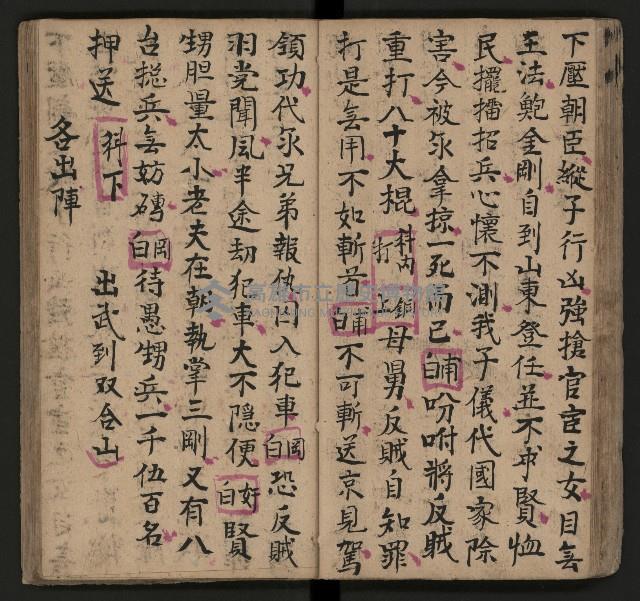 下壓朝臣縱子行凶強搶官宦之女目無
王法鮑金剛自到山東登任並不求賢恤
民擺擂招兵心懷不測我子儀代國家除
害今被永拿掠一死而已甫白吩咐將反賊
重打八十大棍科內打銅上母舅反賊自知罪
打是無用不如斬首甫白不可斬送京見駕
領功代永兄弟報仇囚入犯車岡白恐反賊
羽党聞風半途劫犯車大不隱便奸曰賢
甥胆量太小老夫在朝執掌三剛又有八
台摠兵無妨礙岡白待愚甥兵一千伍百名
押送 科下 出武到双合山
各出陣
高雄市立歷史博物館